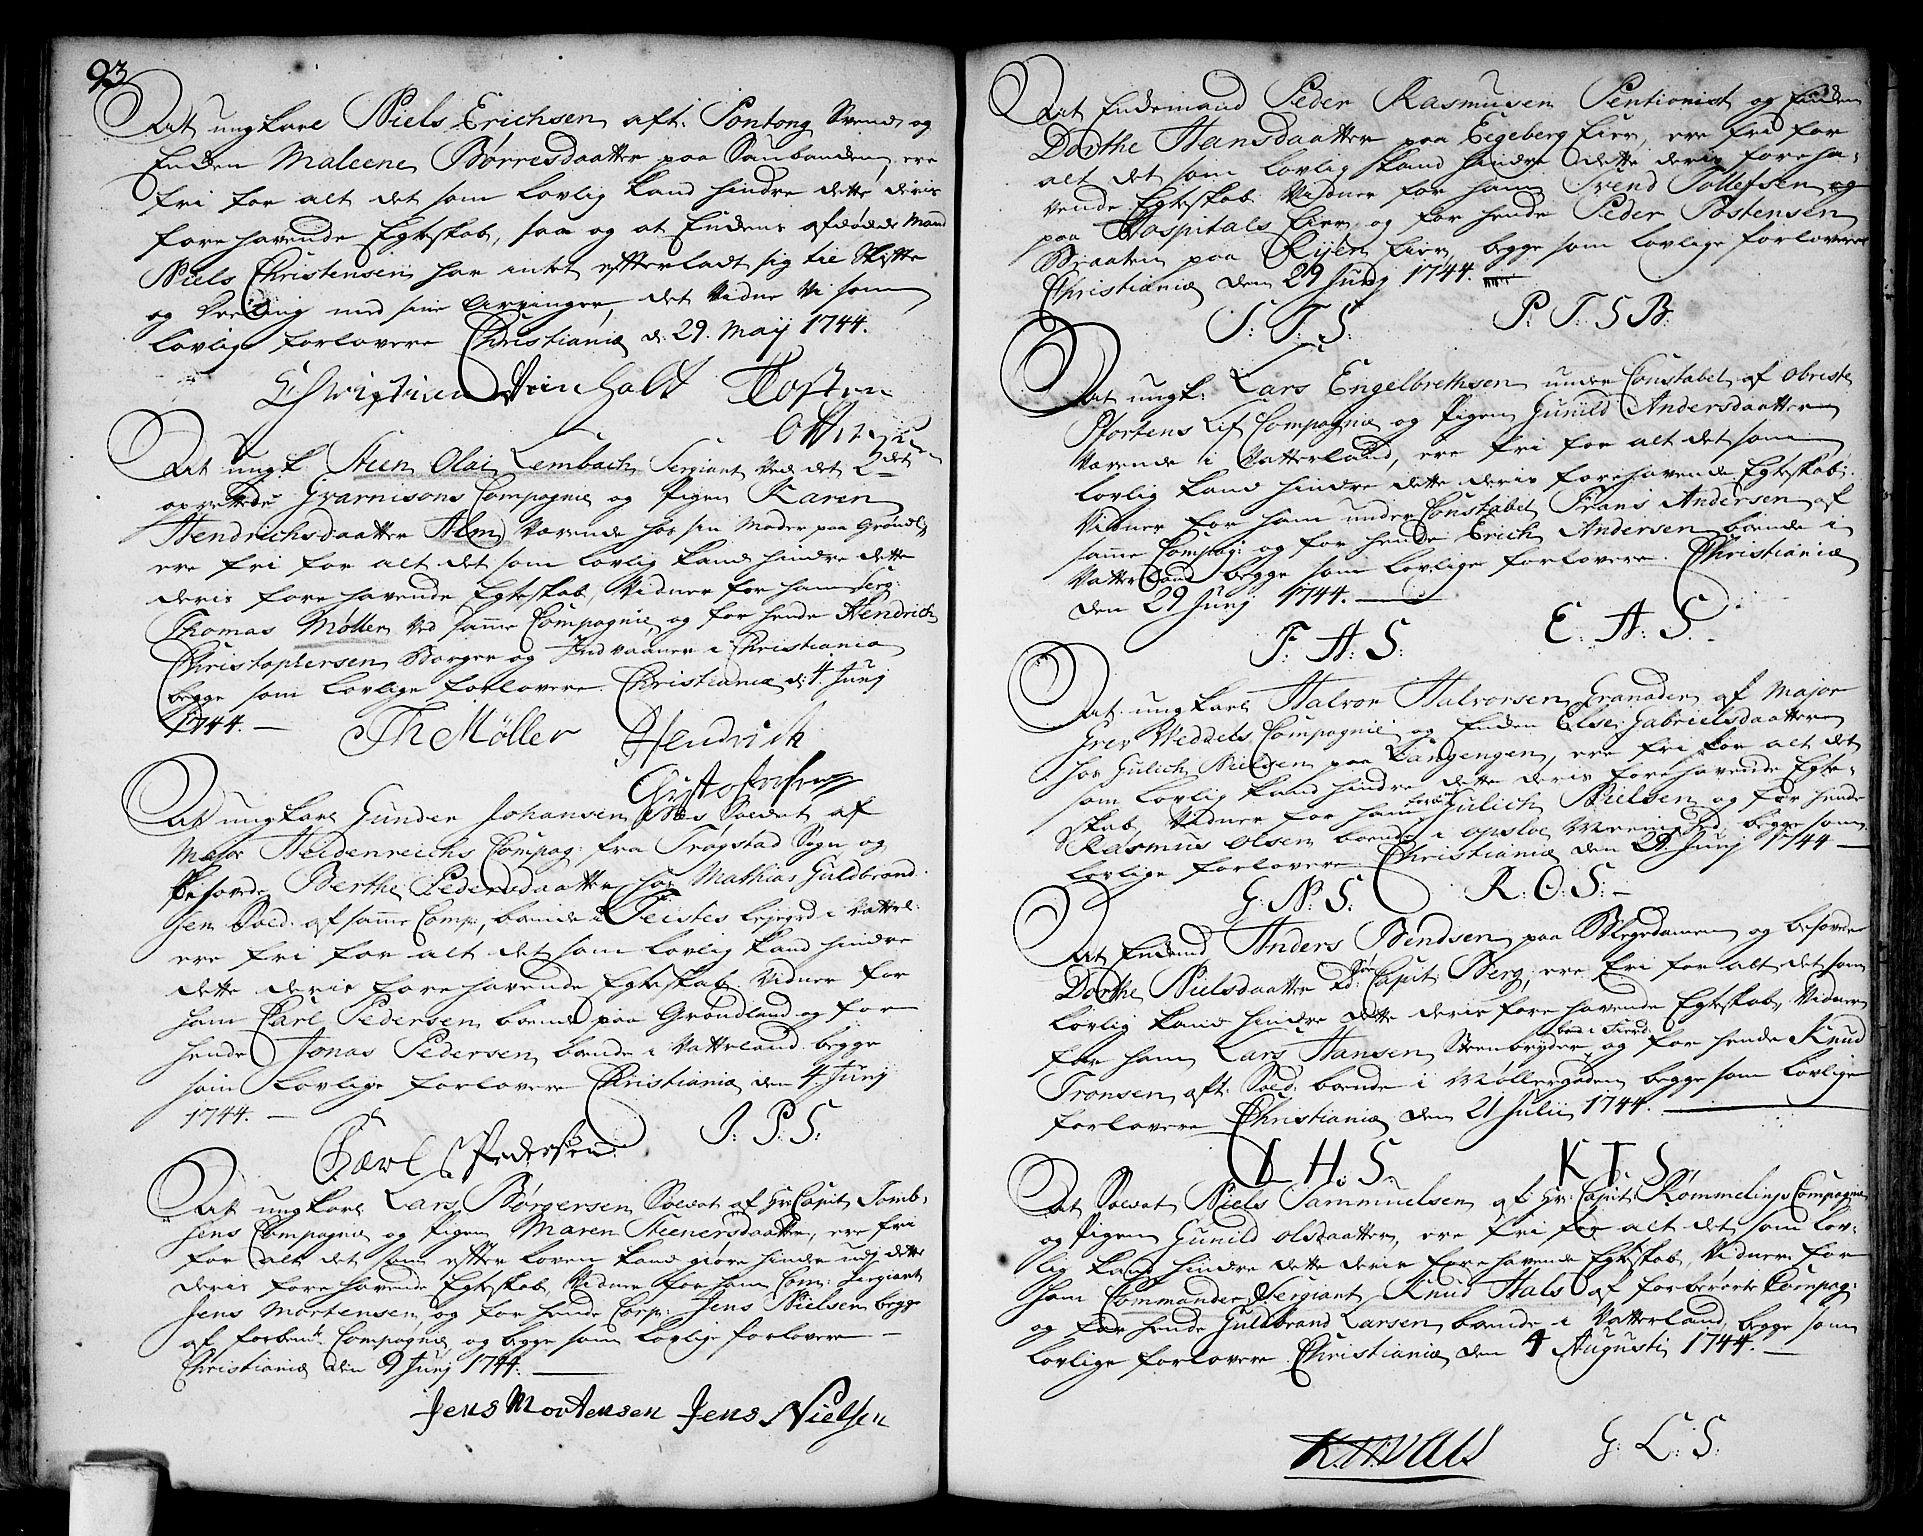 93
At ungkarl Niels Erichsen aft. Pontong Svend og
Enken Maleene Børresdaatter paa Sanbanden, ere
fri for alt det som lovlig kand hindre dette deris
forehavende Egteskab, saa og at Enkens afdøde Mand
Niels Christensen har intet efterladt sig til Skifte
og Deeling med sine Arvinger, det Vidne Vi som
lovlige forlovere Christiania d. 29. Maij 1744.
Christian Veinholt Tosten
Otters
At ungk. Steen Olai Lembach Sergiant ved det 2det
oprettede Guarnisons Compagnie og Pigen Karen
Hendrichsdaatter Alm Værende hos sin Moder paa Grønl:
ere fri for alt det som lovlig kand hindre dette
deris forehavende Egteskab, Vidner for ham Serg:
Thomas Møller ved samme Compagnie, og for hende Hendrich
Christophersen Borger og Indvaaner i Christiania
begge som lovlige forlovere. Christiania d. 4 Junj
1744. —
Th Møller Hendrich
Christophersen
At ungkarl Gunder Johansen Næs Soldat af
Major Heidenreichs Compag: fra Trøgstad Sogn og
besovede Berthe Pedersdaatter hos Mathias Guldbrand:
sen Sold: af samme Comp:, boende i Feistes lejegrd i Vatterl:
ere fri for alt det som lovlig kand hindre
dette deris forehavende Egteskab Vidner for
ham Carl Pedersen boende paa Grønland og for
hende Jonas Pedersen boende i Vatterland begge
som lovlige forlovere Christiania den 4 Junj
1744. —
Carl Pedersen J: P: S:
At ungkarl Lars Børgersen Soldat af Hr Capit Tomb-
sens Compagnie og Pigen Maren Steenersdaatter, ere fri
for alt det som efter loven kand giøre hinder udj dette
deris forehavende Egteskab, Vidner for ham Com: Sergiant
Jens Mortensen og for hende Corp: Jens Nielsen begge
af forben:te Compagnie og begge som lovlige forlovere —
Christiania den 9 Junj 1744. —
Jens Mortensen Jens Nielsen
At Enkemand Peder Rasmusen Pentionist og Enken
Dorthe Hansdaatter paa Eigeberg Eier, ere fri for
alt det som lovlig kand hindre dette deris foreha-
vende Egteskab. Vidner for ham Svend Tollefsen
paa Hospitals Eier og for hende Peder Tostensen
Braaten paa Ryen Eier, begge som lovlige forlovere
Christiania den 29 Junj 1744.
S: T: S: P: T: S B:
At ungk: Lars Engelbrethsen under Constabel af Obriste
Pfortens Lif Compagnie og Pigen Gunild Andersdaatter
Værende i Vatterland, ere fri for alt det som
lovlig kand hindre dette deris forehavende Egteskab:
Vidner for ham under Constabel Frans Andersen af
samme Compag: og for hende Erich Andersen boende i
Vatterland begge som lovlige forlovere. Christiania
den 29 Junj 1744. —
F: A: S: E: A: S:
At ungkarl Halvor Halvorsen Granader af Major
Grev Wedels Compagnie og Enken Else Gabrielsdaatter
hos Gulich Nielsen paa Langengen, ere fri for alt det
som lovlig kand hindre dette deris forehavende Egte-
skab, Vidner for ham Gulich Nielsen og for hende
Rasmus Olsen boende i Opsloe begge som
lovlige forlovere Christiania den 29 Junj 1744 —
G: N: S: R: O: S: —
At Enkemd Anders Bendsen paa Blegedamen og besovede
Dorthe Nielsdaatter Capit Berg, ere fri for alt det som
lovlig kand hindre dette deris forehavende Egteskab, Vidner
for ham Lars Hansen Steenbryder boed i Fierd: og for hende Knud
Tronsen aft: Sold: boende i Møllergaden begge som lovlige
forlovere Christiania den 21 Julii 1744. —
L H: S: K T S
At Soldat Niels Sammuelsen af Hr: Capit: Rømmelings Compagnie
og Pigen Gunild Olsdaatter, ere fri for alt det som lov-
lig kand hindre dette deris forehavende Egteskab, Vidner for
ham Commander Sergiant Knud Hals af forberørte Compag:
og for hende Guldbrand Larsen boende i Vatterland, begge som
lovlige forlovere Christiania den 4 Augusti 1744. —
K. Hals G: L: S: